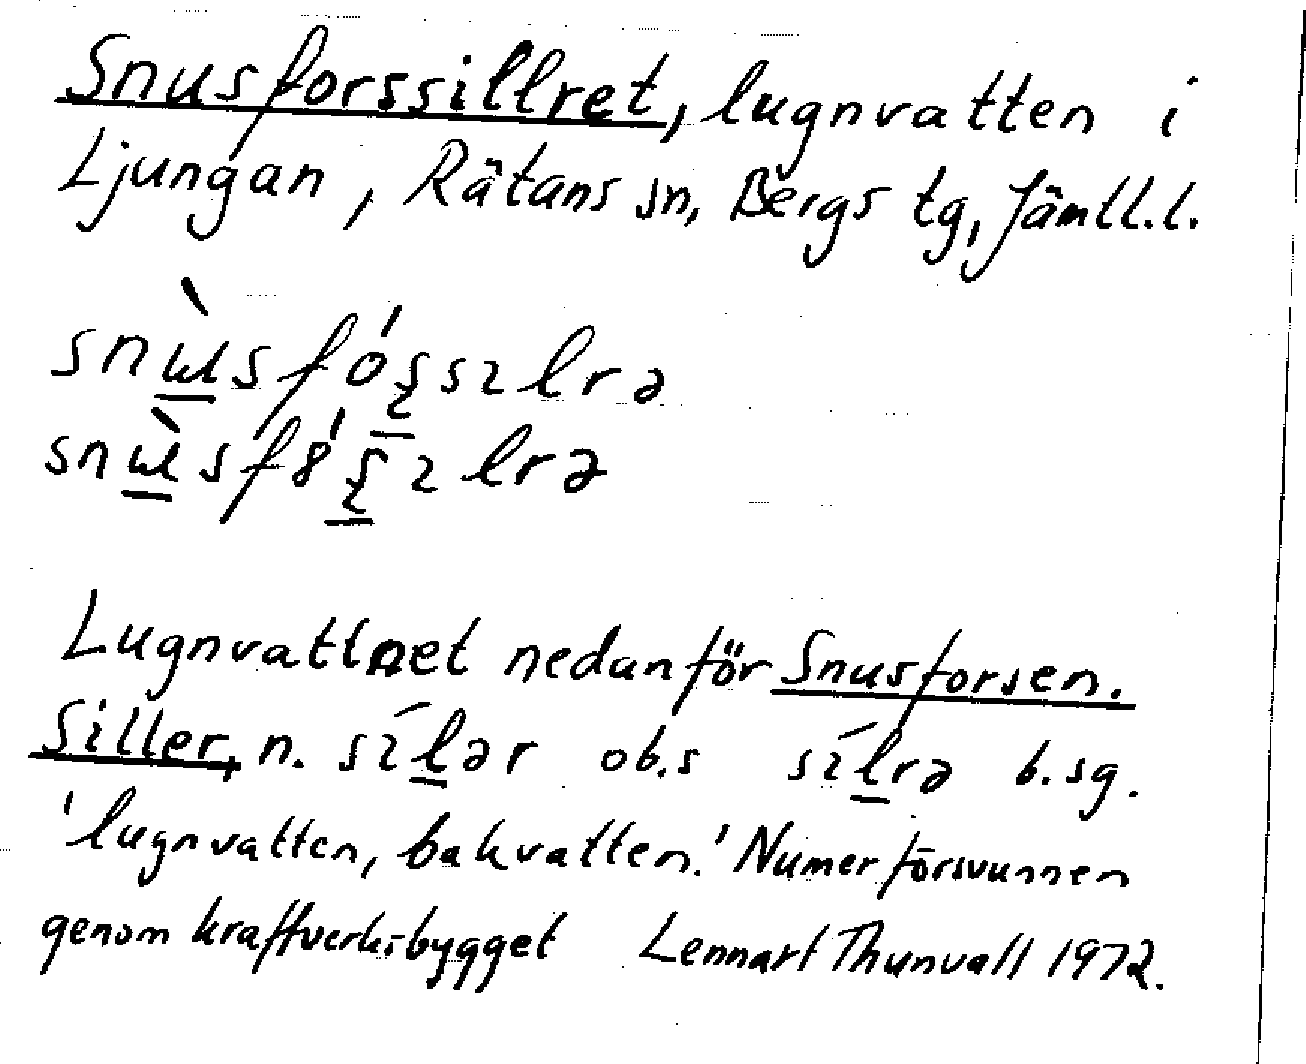 Snusforssillret, lugnvatten i
Ljungan, Rätans sn, Bergs tg, Jämtl.l.
Lugnvattnet nedanför Snusforsen.
Siller, n. sílər ob.s sílrə b.sg.
'lugnvatten, bakvatten.' Numer försvunnen
genom kraftverksbygget Lennart Thunvall 1972.